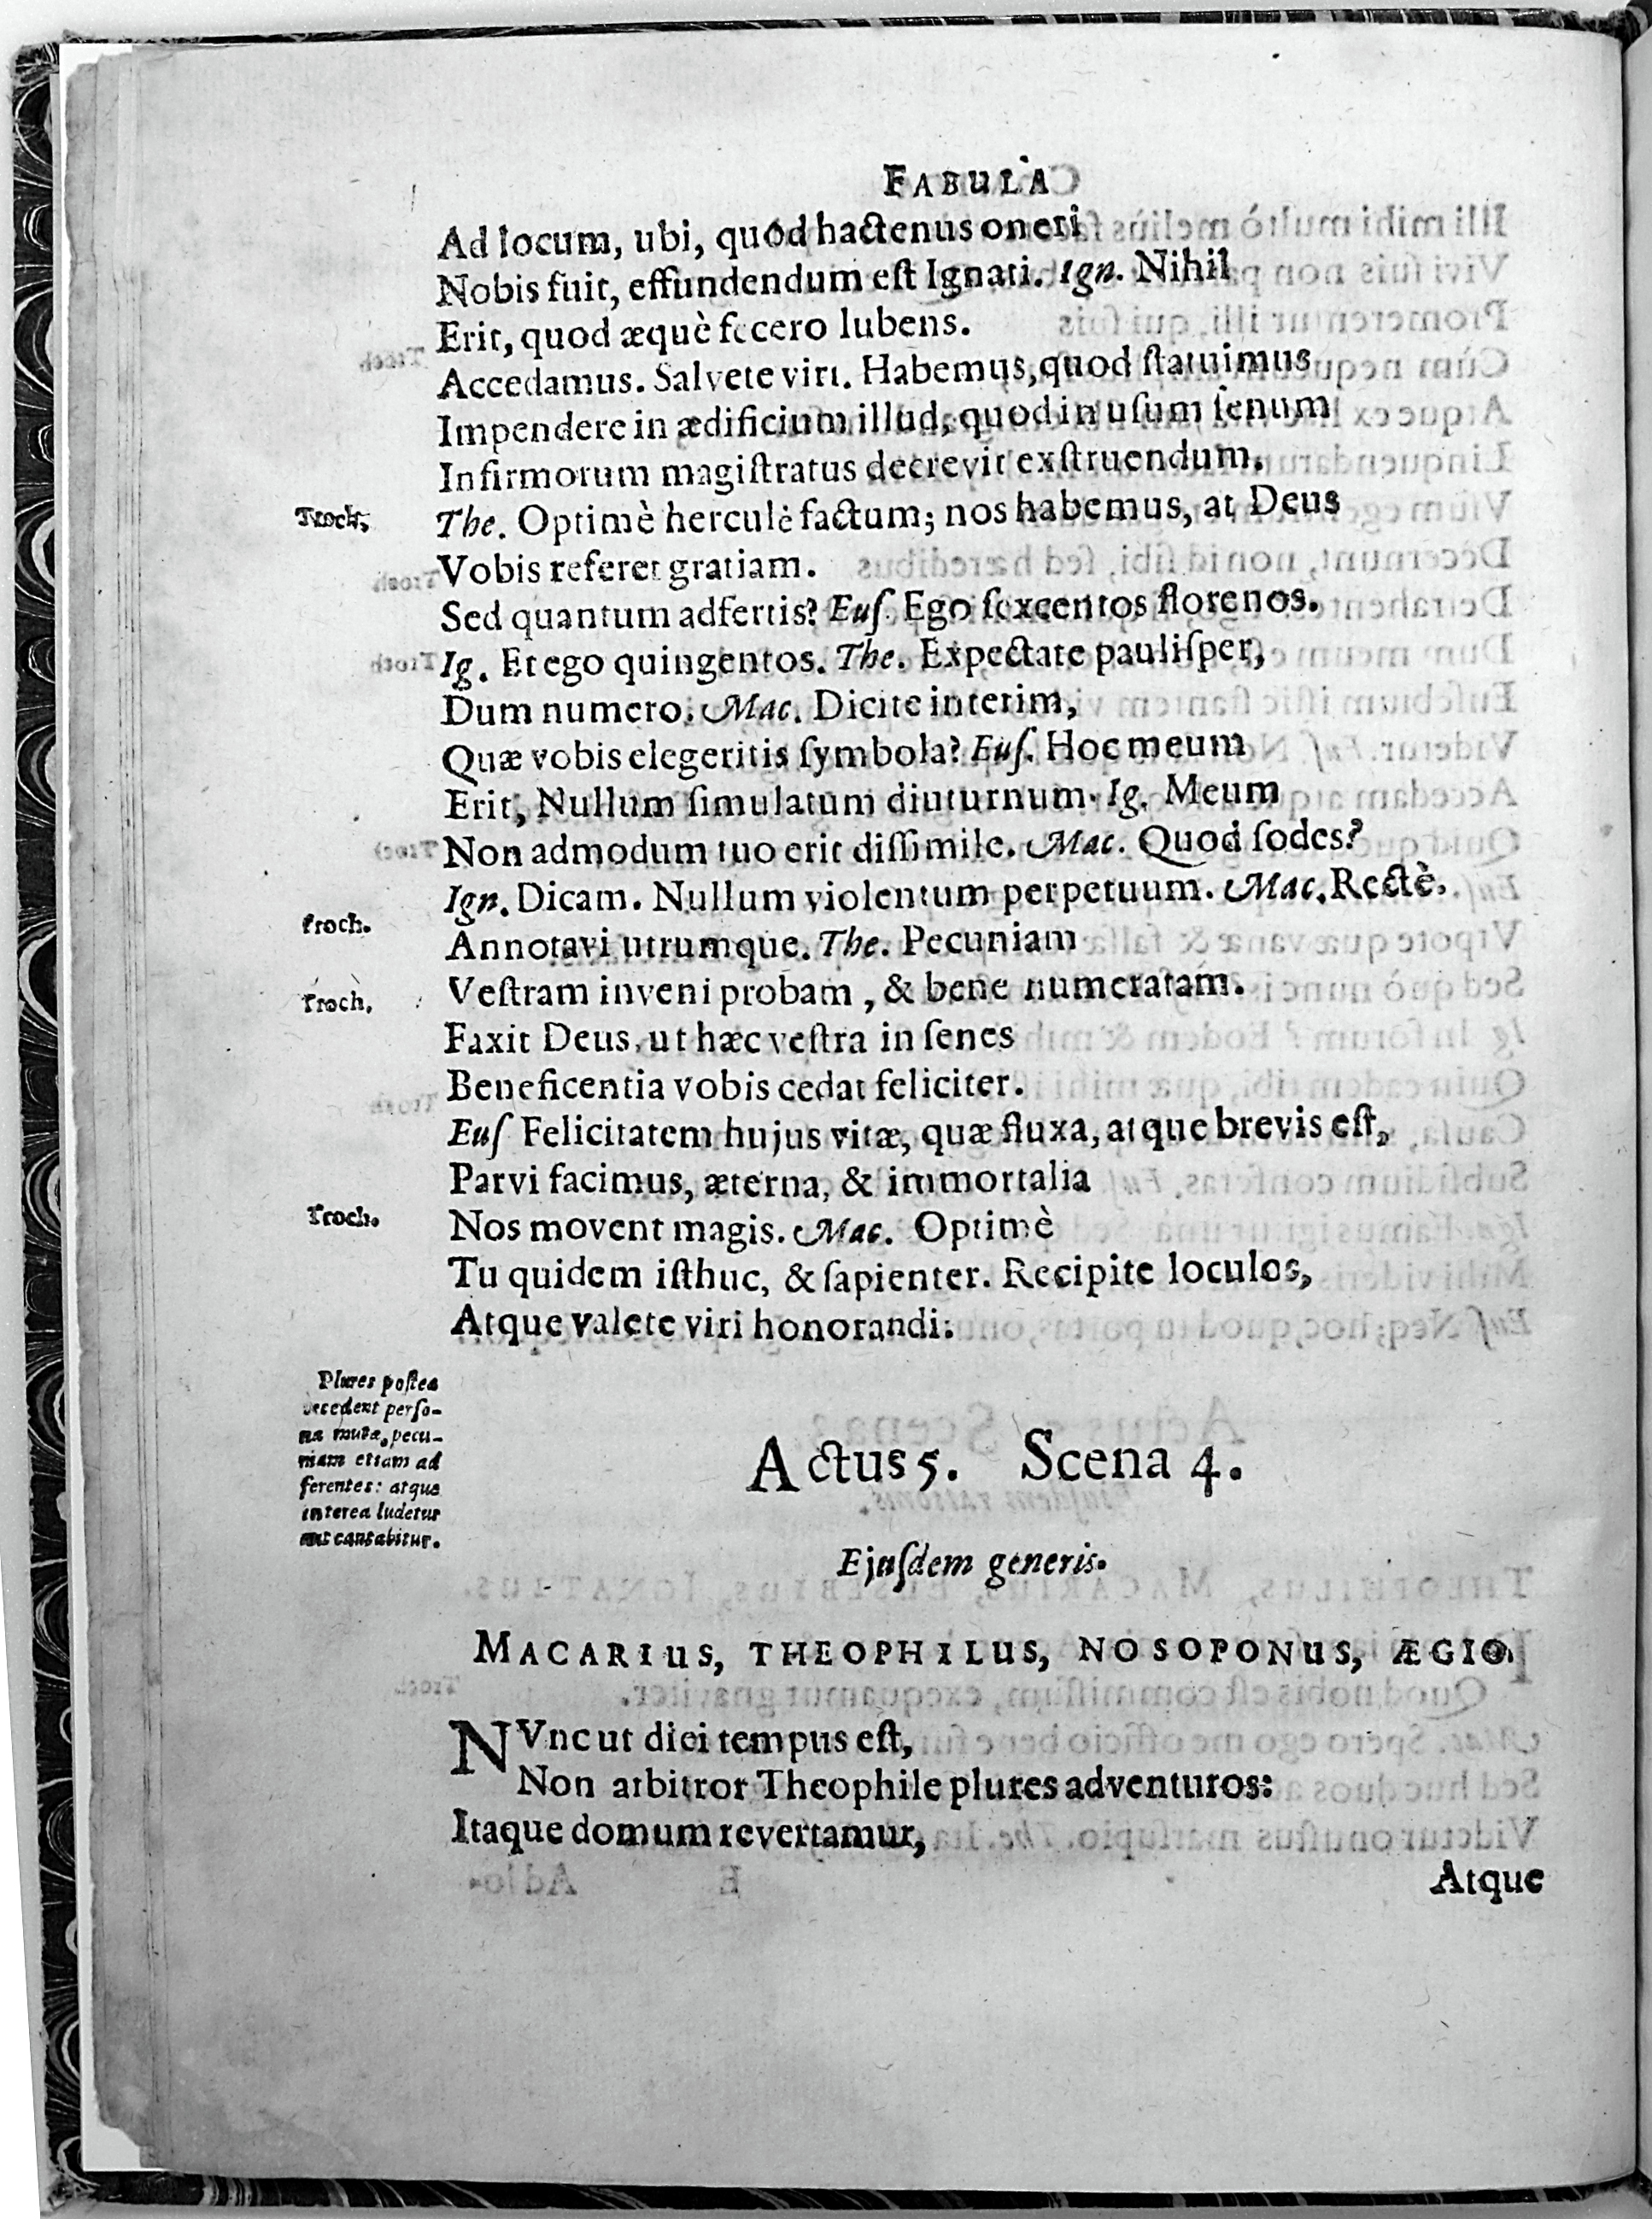 FABULA
Ad locum, ubi, quod hactenus oneri
Nobis fuit, effundendum est Ignati. Ign. Nihil
Erit, quod æquè fecero lubens.
Accedamus. Salvete viri. Habemus, quod statuimus
Impendere in ædificium illud, quod in usum senum
Infirmorum magistratus decrevit exstruendum.
Troch. The. Optimè herculè factum; nos habemus, at Deus
Vobis referet gratiam.
Sed quantum adfertis? Eus. Ego sexcentos florenos.
Ig. Et ego quingentos. The. Expectate paulisper,
Dum numero. Mac. Dicite interim,
Quæ vobis elegeritis symbola? Eus. Hoc meum
Erit, Nullum simulatum diuturnum. Ig. Meum
Non admodum tuo erit dissimile. Mac. Quod sodes?
Ign. Dicam. Nullum violentum perpetuum. Mac. Rectè.
Troch. Annotavi utrumque. The. Pecuniam
Troch. Vestram inveni probam, & bene numeratam.
Faxit Deus, ut hæc vestra in senes
Beneficentia vobis cedat feliciter.
Eus Felicitatem hujus vitæ, quæ fluxa, atque brevis est,
Parvi facimus, æterna, & immortalia
Troch. Nos movent magis. Mac. Optimè
Tu quidem isthuc, & sapienter. Recipite loculos,
Atque valete viri honorandi.
Plures postea
accedent perso-
næ mutæ, pecu-
niam etiam ad
ferentes: atque
interea ludetur
aut cantabitur.
Actus 5. Scena 4.
Ejusdem generis.
MACARIUS, THEOPHILUS, NOSOPONUS, ÆGIO.
NVnc ut diei tempus est,
Non arbitror Theophile plures adventuros:
Itaque domum revertamur,
Atque